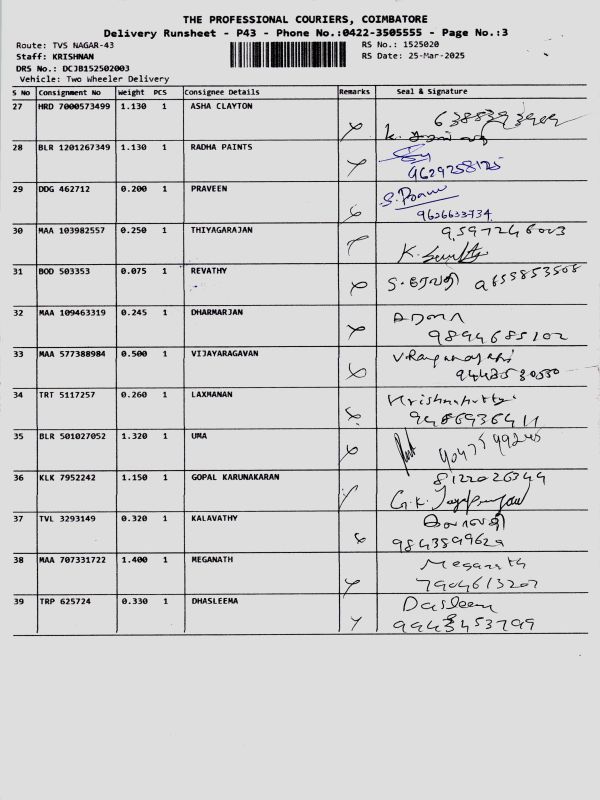 THE PROFESSIONAL COURIERS, COIMBATORE
Delivery Runsheet - P43 - Phone No.:0422-3505555 - Page No.:3
Route: TVS NAGAR-43 RS No.: 1525020
Staff: KRISHNAN RS Date: 25-Mar-2025
DRS No.: DCJB152502003
Vehicle: Two Wheeler Delivery
S No Consignment No Weight PCS Consignee Details Remarks Seal & Signature
27 HRD 7000573499 1.130 1 ASHA CLAYTON
28 BLR 1201267349 1.130 1 RADHA PAINTS
9629258125
29 DDG 462712 0.200 1 PRAVEEN
9626633734
30 MAA 103982557 0.250 1 THIYAGARAJAN
31 BOD 503353 0.075 1 REVATHY S. ரேவதி 9655853508
32 MAA 109463319 0.245 1 DHARMARJAN
9894685102
33 MAA 577388984 0.500 1 VIJAYARAGAVAN
34 TRT 5117257 0.260 1 LAXMANAN
9486936411
35 BLR 501027052 1.320 1 UMA
36 KLK 7952242 1.150 1 GOPAL KARUNAKARAN 8122026344
37 TVL 3293149 0.320 1 KALAVATHY
9843599629
38 MAA 707331722 1.400 1 MEGANATH Meganath
7904613207
39 TRP 625724 0.330 1 DHASLEEMA Dasleem